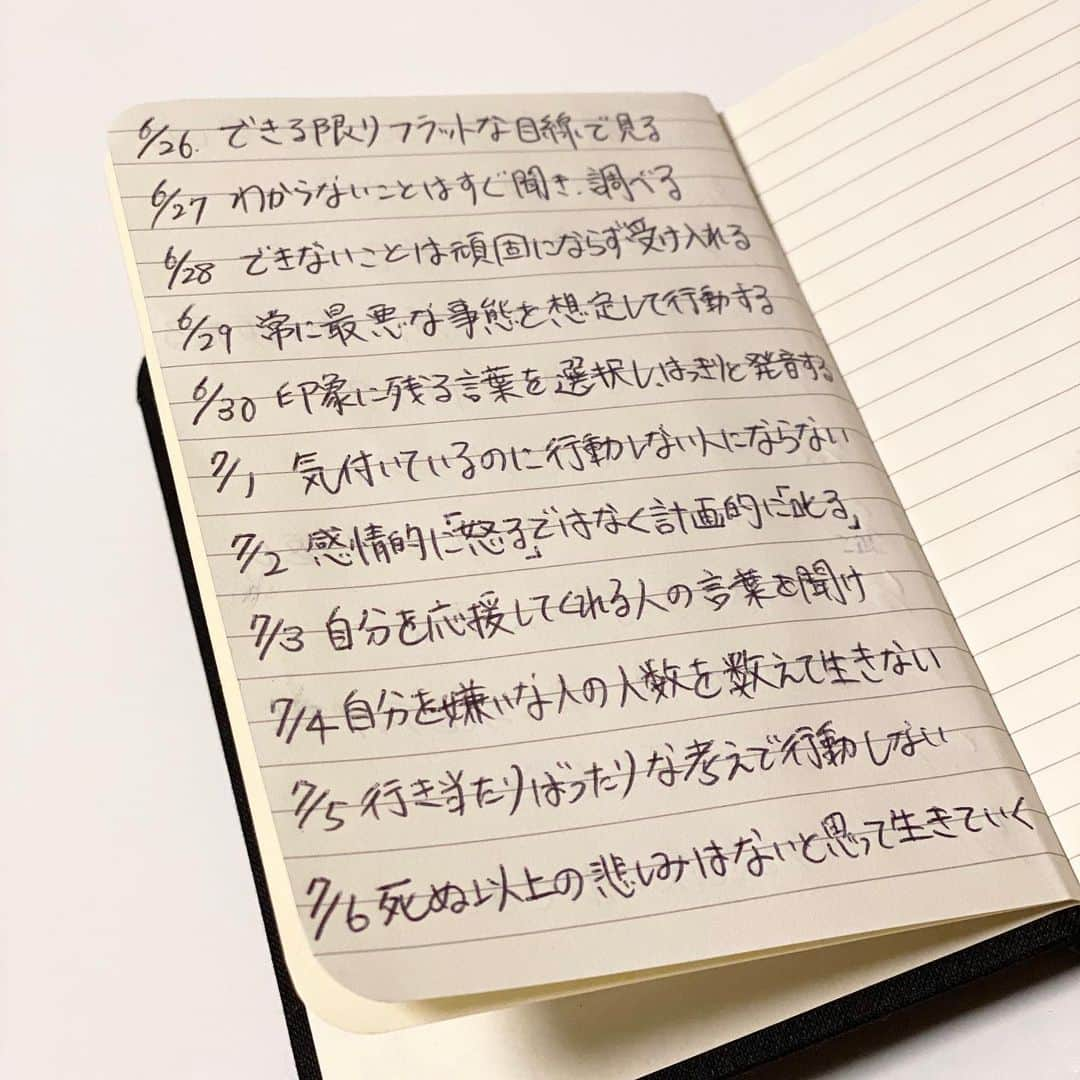 6/26. できる限りフラットな目線で見る
6/27 わからないことはすぐ聞き、調べる
6/28 できないことは頑固にならず受け入れる
6/29 常に最悪な事態を想定して行動する
6/30 印象に残る言葉を選択し、はっきりと発音する
7/1 気付いているのに行動しない人にならない
7/2 感情的に「怒る」ではなく計画的に「叱る」
7/3 自分を応援してくれる人の言葉を聞け
7/4 自分を嫌いな人の人数を数えて生きない
7/5 行き当たりばったりな考えで行動しない
7/6 死ぬ以上の悲しみはないと思って生きていく